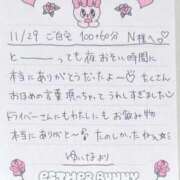 11/29 ご自宅 100+60分 N様へ
と──っても夜おそい時間に
本当にありがとうだったよ〜♡ たくさん
おほめの言葉頂っちゃって うれしすぎました♡
ドライバーさんにもわたしにも お飲み物
本当にありがと〜 たのしかったねぇ
ゆいなより
ESTHER BUNNY